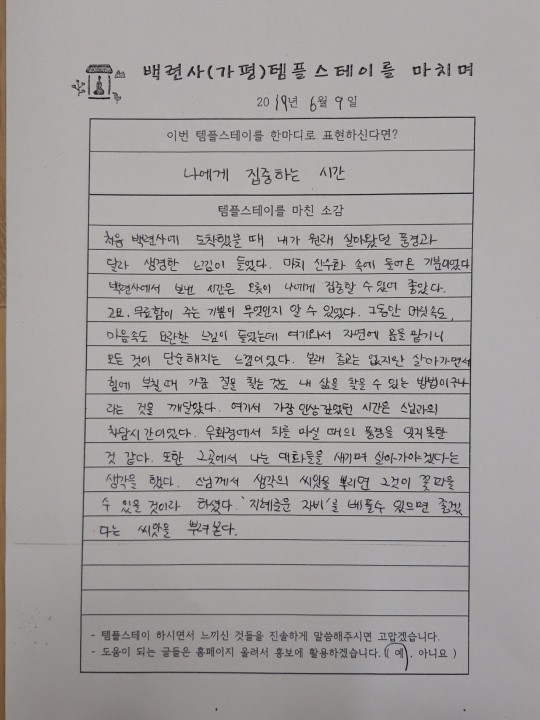 백련사(가평)템플스테이를 마치며
2019년 6월 9일
이번 템플스테이를 한마디로 표현하신다면?
나에게 집중하는 시간
템플스테이를 마친 소감
처음 백련사에 도착했을 때 내가 원래 살아왔던 풍경과
달라 생경한 느낌이 들었다. 마치 산수화 속에 들어온 기분이었다
백련사에서 보낸 시간은 오롯이 나에게 집중할 수 있어 좋았다.
고요, 무료함이 주는 기쁨이 무엇인지 알 수 있었다. 그동안 머릿속도,
마음속도 요란한 느낌이 들었는데 여기와서 자연에 몸을 맡기니
모든 것이 단순해지는 느낌이었다. 본래 종교는 없지만 살아가면서
힘에 부칠 때 가끔 절을 찾는 것도 내 삶을 찾을 수 있는 방법이구나
라는 것을 깨달았다. 여기서 가장 인상깊었던 시간은 스님과의
차담시간이었다. 우화정에서 차를 마실 때의 풍경을 잊지 못할
것 같다. 또한 그곳에서 나눈 대화들을 새기며 살아가야겠다는
생각을 했다. 스님께서 생각의 씨앗을 뿌리면 그것이 꽃 피울
수 있을 것이라 하셨다. '지혜로운 자비'를 베풀 수 있으면 좋겠
다는 씨앗을 뿌려본다.
- 템플스테이 하시면서 느끼신 것들을 진솔하게 말씀해주시면 고맙겠습니다.
- 도움이 되는 글들은 홈페이지 올려서 홍보에 활용하겠습니다.( 예 , 아니요 )